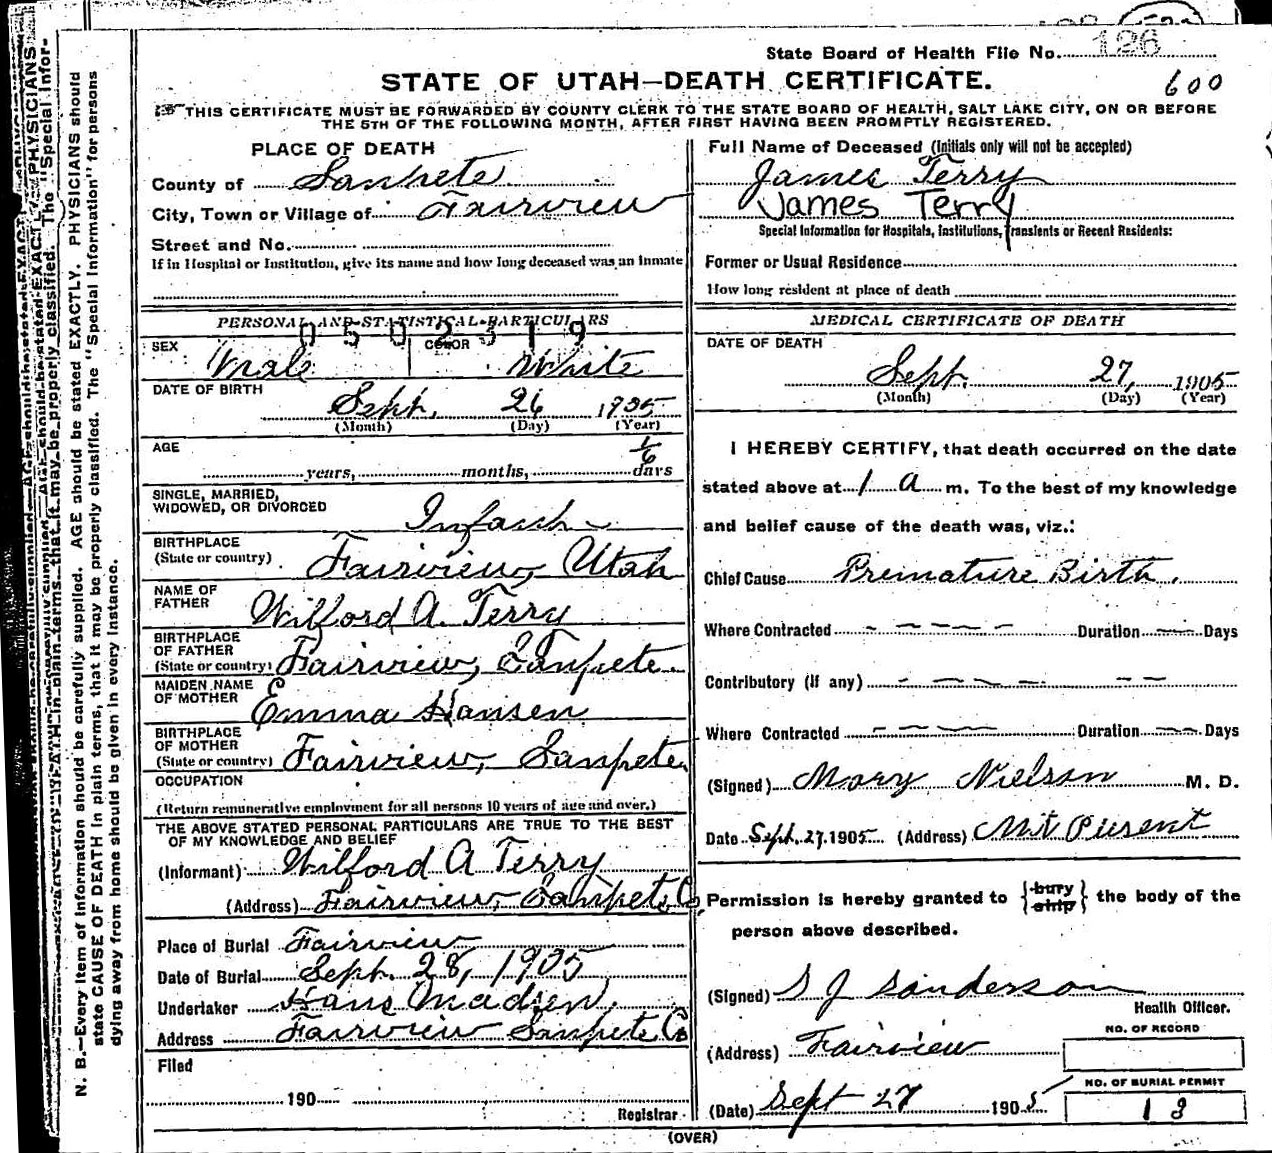 State Board of Health File No. 126
600
STATE OF UTAH—DEATH CERTIFICATE.
THIS CERTIFICATE MUST BE FORWARDED BY COUNTY CLERK TO THE STATE BOARD OF HEALTH, SALT LAKE CITY, ON OR BEFORE
THE 5TH OF THE FOLLOWING MONTH, AFTER FIRST HAVING BEEN PROMPTLY REGISTERED.
N. B.—Every item of information should be carefully supplied. AGE should be stated EXACTLY. PHYSICIANS should
state CAUSE OF DEATH in plain terms, that it may be properly classified. The "Special Information" for persons
dying away from home should be given in every instance.
PLACE OF DEATH
County of Sanpete
City, Town or Village of Fairview
Street and No.
If in Hospital or Institution, give its name and how long deceased was an inmate
PERSONAL AND STATISTICAL PARTICULARS
SEX Male COLOR White
DATE OF BIRTH
Sept. 26 1905
(Month) (Day) (Year)
AGE
years, months, 1/6 days
SINGLE, MARRIED,
WIDOWED, OR DIVORCED Infant
BIRTHPLACE
(State or country) Fairview, Utah
NAME OF
FATHER Wilford A. Terry
BIRTHPLACE
OF FATHER
(State or country) Fairview, Sanpete
MAIDEN NAME
OF MOTHER Emma Hansen
BIRTHPLACE
OF MOTHER
(State or country) Fairview, Sanpete
OCCUPATION
(Return remunerative employment for all persons 10 years of age and over.)
THE ABOVE STATED PERSONAL PARTICULARS ARE TRUE TO THE BEST
OF MY KNOWLEDGE AND BELIEF
(Informant) Wilford A Terry
(Address) Fairview, Sanpete Co.
Place of Burial Fairview
Date of Burial Sept. 28, 1905
Undertaker Hans Madsen,
Address Fairview Sanpete Co
Filed
190
Registrar
Full Name of Deceased (Initials only will not be accepted)
James Terry
James Terry
Special Information for Hospitals, Institutions, Transients or Recent Residents:
Former or Usual Residence
How long resident at place of death
MEDICAL CERTIFICATE OF DEATH
DATE OF DEATH
Sept. 27, 1905
(Month) (Day) (Year)
I HEREBY CERTIFY, that death occurred on the date
stated above at 1 a m. To the best of my knowledge
and belief cause of the death was, viz.:
Chief Cause Premature Birth.
Where Contracted Duration Days
Contributory (if any)
Where Contracted Duration Days
(Signed) Mary Nielson M. D.
Date Sept. 27, 1905 (Address) Mt Plesent
Permission is hereby granted to {bury ship} the body of the
person above described.
(Signed) S J Sanderson
Health Officer.
(Address) Fairview
NO. OF RECORD
(Date) Sept 27 1905
NO. OF BURIAL PERMIT
13
(OVER)